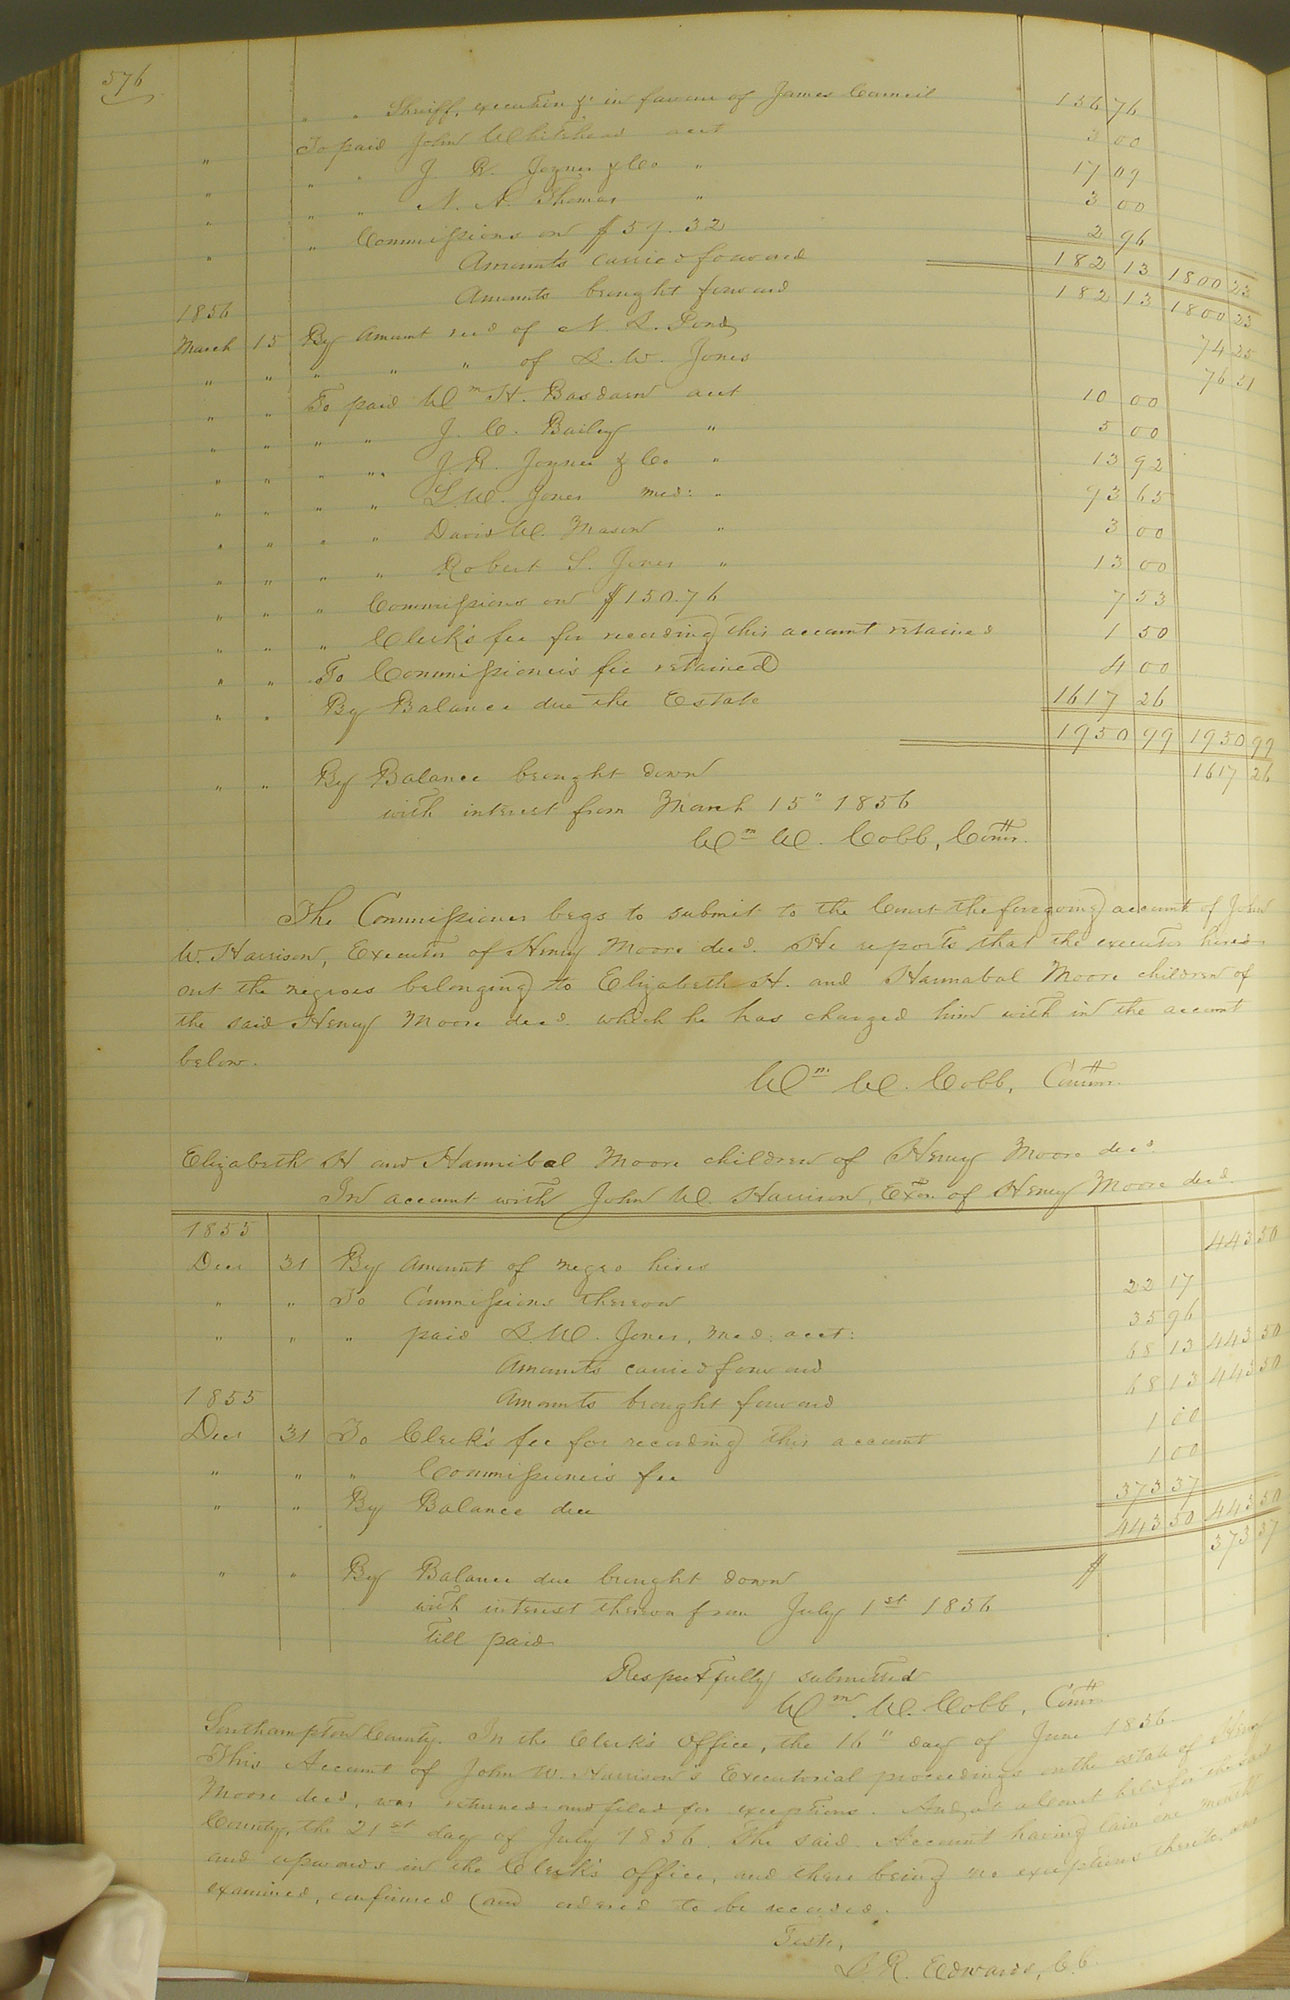 576
" " Sheriff, execution &c in favour of James Council 156 76
" To paid John Whitehead acct 3 00
" " " J. R. Joyner & Co " 17 09
" " " N. N. Thomas " 3 00
" " Commissions on $59.32 2 96
Amounts carried forward 182 13 1800 23
Amounts brought forward 182 13 1800 23
1856
March 15 By Amount recd of N. L. Pond 74 25
" " " " " of L. W. Jones 76 51
" " To paid Wm H. Barden acct 10 00
" " " " J. C. Bailey " 5 00
" " " " J. R. Joyner & Co " 13 92
" " " " L. W. Jones med: " 93 65
" " " " Davis W. Mason " 3 00
" " " " Robert S. Jones " 13 00
" " " Commissions on $150.76 7 53
" " " Clerk's fee for recording this account retained 1 50
" " To Commissioner's fee retained 4 00
" " By Balance due the Estate 1617 26
1950 99 1950 99
" " By Balance brought down 1617 26
with interest from March 15" 1856
Wm W. Cobb, Comr.
The Commissioner begs to submit to the Court the foregoing account of John
W. Harrison, Executor of Henry Moore decd. He reports that the executor hired
out the negroes belonging to Elizabeth H. and Hannabal Moore children of
the said Henry Moore decd. which he has charged him with in the account
below.
Wm W. Cobb, Comr.
Elizabeth H and Hannibal Moore children of Henry Moore decd
In account with John W. Harrison, Exor. of Henry Moore decd.
1855
Decr 31 By Amount of negro hires 443 50
" " To Commissions thereon 22 17
" " " paid L. W. Jones, med: acct: 35 96
Amounts carried forward 68 13 443 50
1855 Amounts brought forward 68 13 443 50
Decr 31 To Clerk's fee for recording this account 1 00
" " " Commissioner's fee 1 00
" " By Balance due 373 37
443 50 443 50
" " By Balance due brought down $ 373 37
with interest thereon from July 1st 1856
till paid
Respectfully submitted
Wm W. Cobb, Comr.
Southampton County. In the Clerk's Office, the 16" day of June 1856.
This Account of John W. Harrison's Executorial proceedings on the estate of Henry
Moore decd, was returned and filed for exceptions. And, at a Court held for the said
County, the 21st day of July 1856. The said Account having lain one month
and upwards in the Clerk's Office, and there being no exceptions thereto, was
examined, confirmed and ordered to be recorded.
Teste,
L. R. Edwards, C. C.